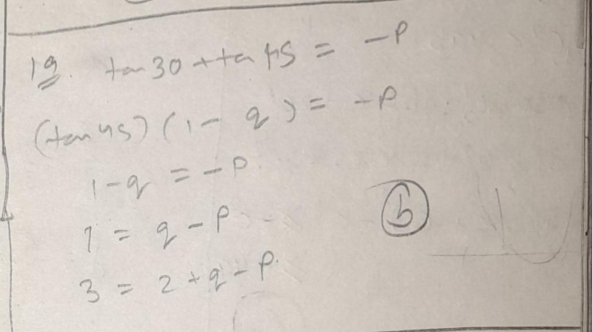 19. tan 30 + tan 45 = -P
(tan 45) (1 - q) = -P
1 - q = -P
1 = q - P
3 = 2 + q - P.
b